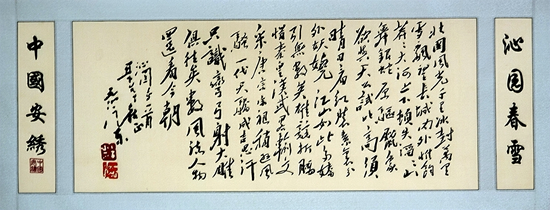 沁园春雪
北国风光千里冰封万里
雪飘望长城内外惟馀
莽莽大河上下顿失滔滔山
舞银蛇原驱腊象
欲与天公试比高须
晴日看红装素裹分
外妖娆江山如此多娇
引无数英雄竞折腰
惜秦皇汉武略输文
采唐宗宋祖稍逊风
骚一代天骄成吉思汗
只识弯弓射大雕
俱往矣数风流人物
还看今朝
沁园春一首
教正
毛泽东
中國安绣